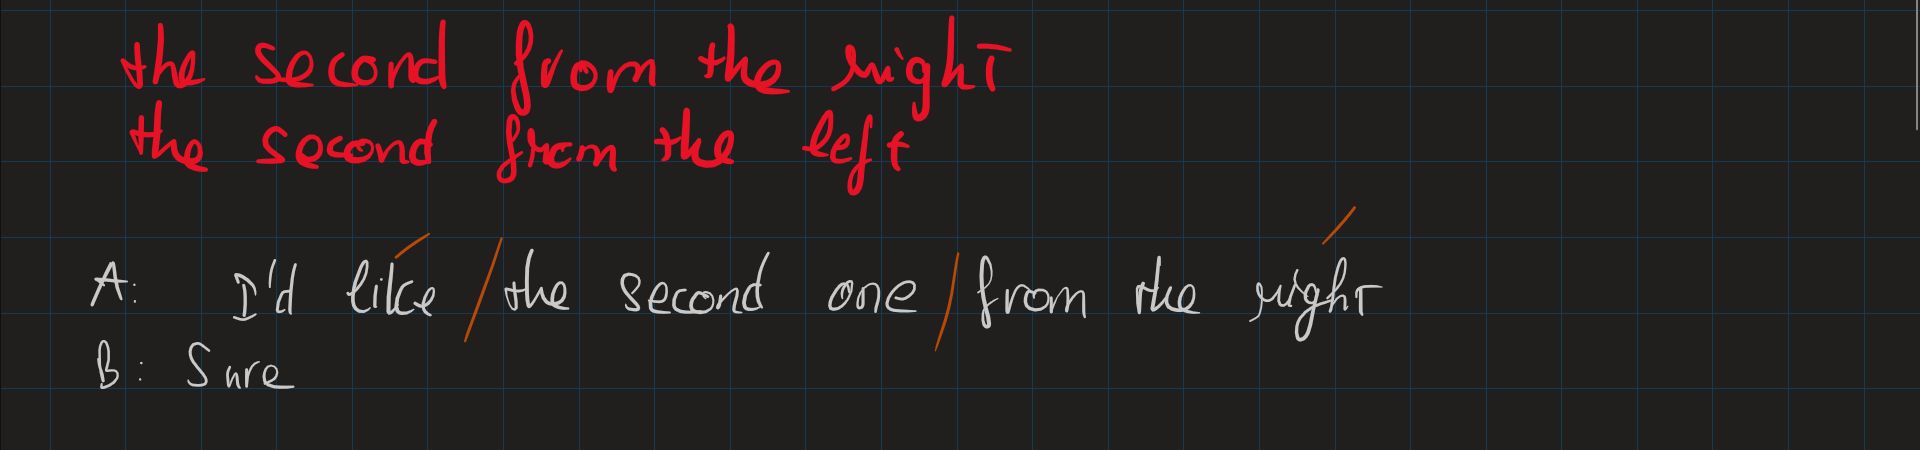 the second from the right
the second from the left
A: I'd like / the second one / from the right
B: Sure